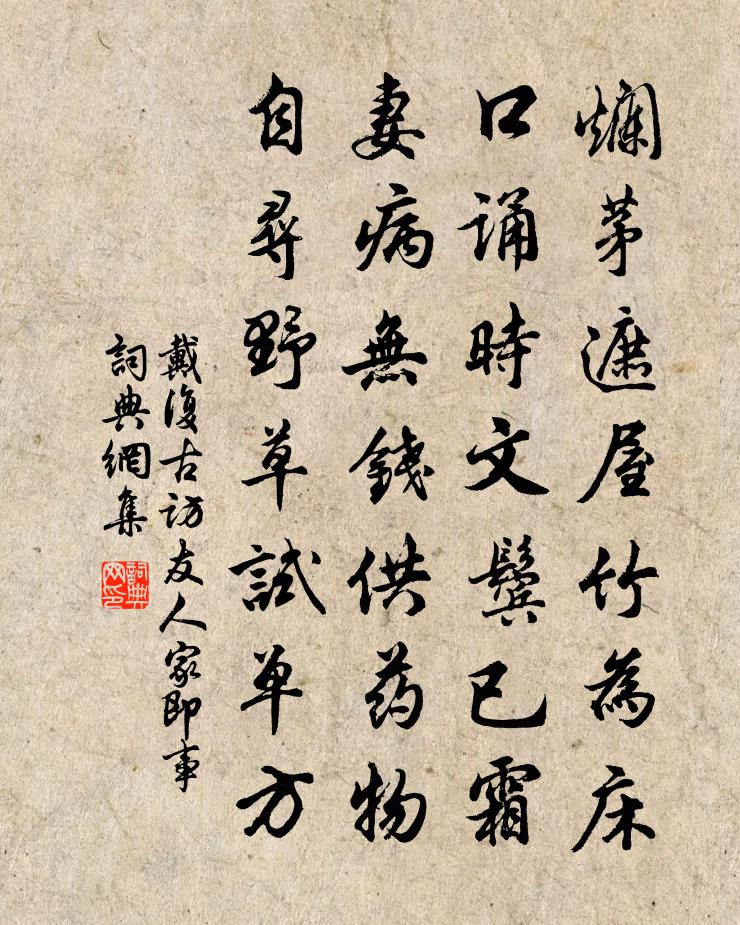 爛茅遮屋竹為床
口誦時文鬢已霜
妻病無錢供药物
自尋野草試单方
戴復古访友人家即事
詞典網集
詞典网印